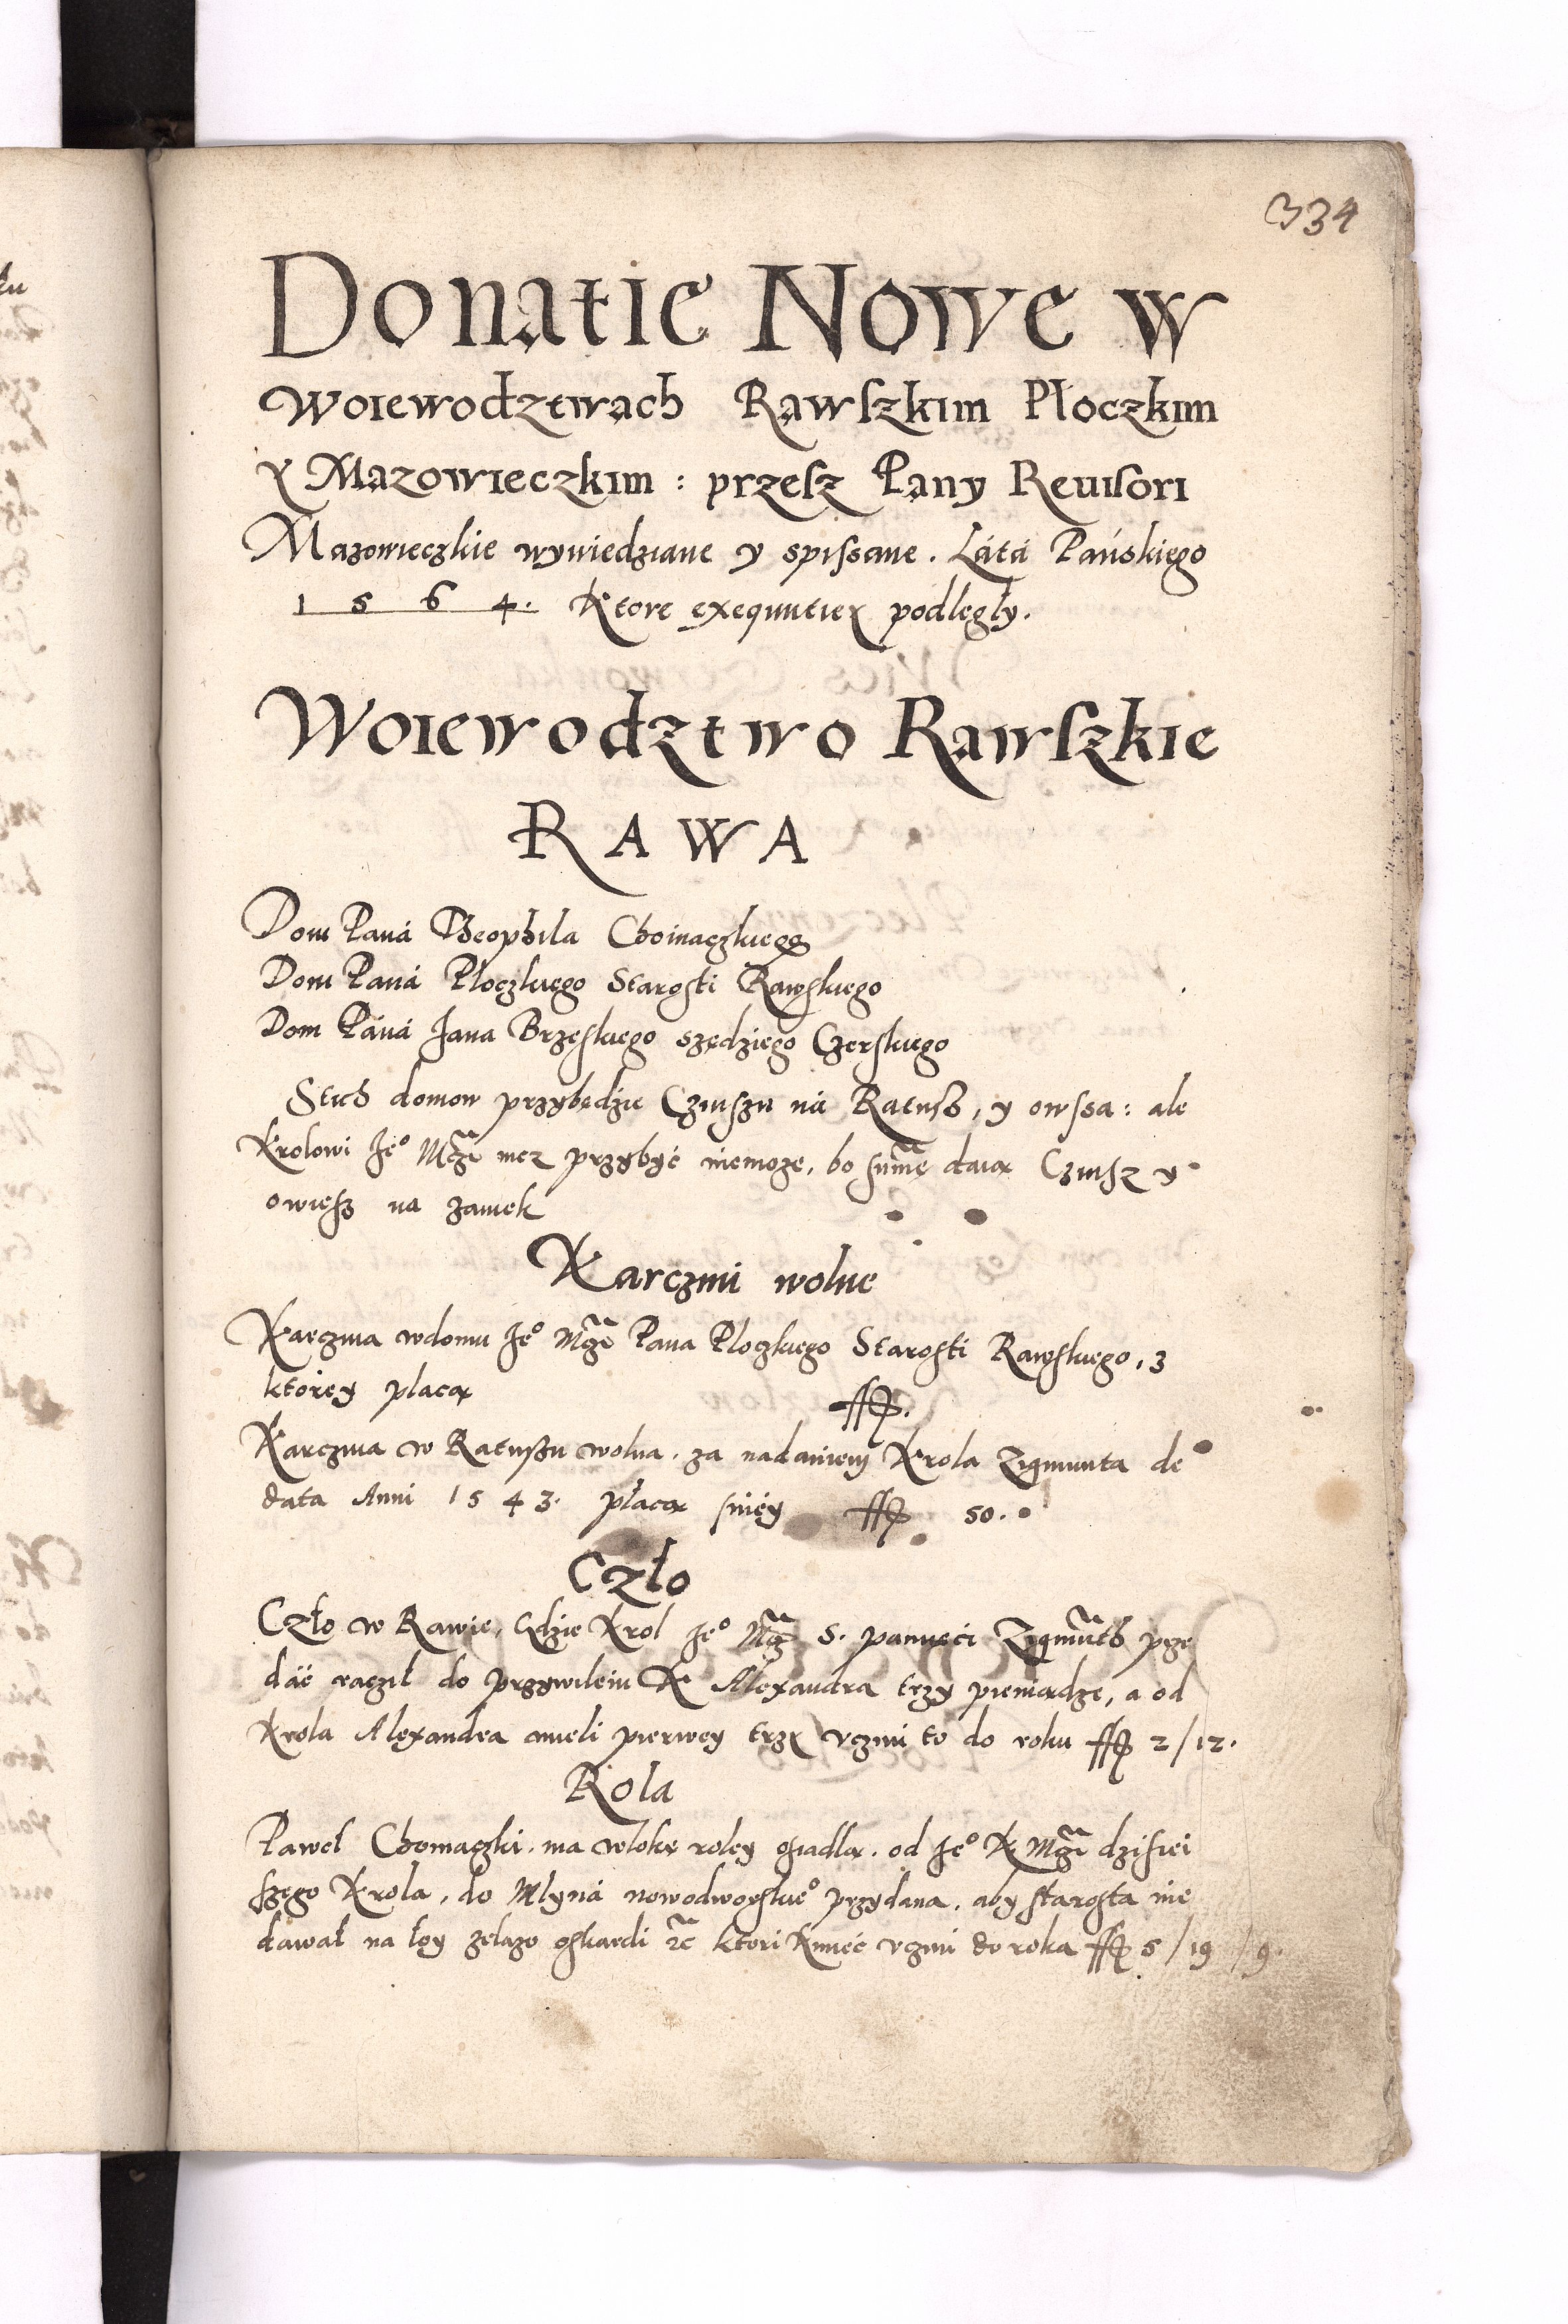 334
Donatie Nowe w
Woiewodztwach Rawſzkim Płoczkim
Y Mazowieczkim : przeſz Pany Reuiſori
Mazowieczkie wywiedziane y spiſsane . Látá Páńskiego
1 5 6 4 . Ktore exequutiej podlegly.
Woiewodztwo Rawſzkie
RAWA
Dom Paná Theophila Choinaczkiego
Dom Paná Płoczkiego Starosti Rawskiego
Dom Páná Jana Brzeskiego szędziego Czerskiego
Stich domow przybędzie Czinſzu ná Ratuſz, y owſsa : ale
Krolowi Je° Mczi nicz przybyć niemoze, bo ſumę daią Czinſz y
owieſz na zamek
Karczmi wolne
Karczma wdomu Je° Mczi Pana Ploczkiego Starosti Rawskiego, z
ktorey placą ff.
Karczma w Ratuſzu wolna . za nadaniem Krola Zigmunta de
data Anni 1543. płacą ſniey ff 50.
Czło
Czło w Rawie, Gdzie Krol Je° Mcz S. pamięci Zigmuth prze
dáć raczil do przywileiu K Alexandra trzy pieniądze, a od
Krola Alexandra mieli pierwey trzy vczini to do roku ff 2/12.
Rola
Paweł Choinaczki . ma wloke roley osiadlą . od Je° K Mczi dziſiei
szego Krola , do Mlyná nowodworskie° przydana . aby starosta nie
dawał na łoy zelazo oskardi &c ktori Kmieć vczini do roka ff 5/19/9.